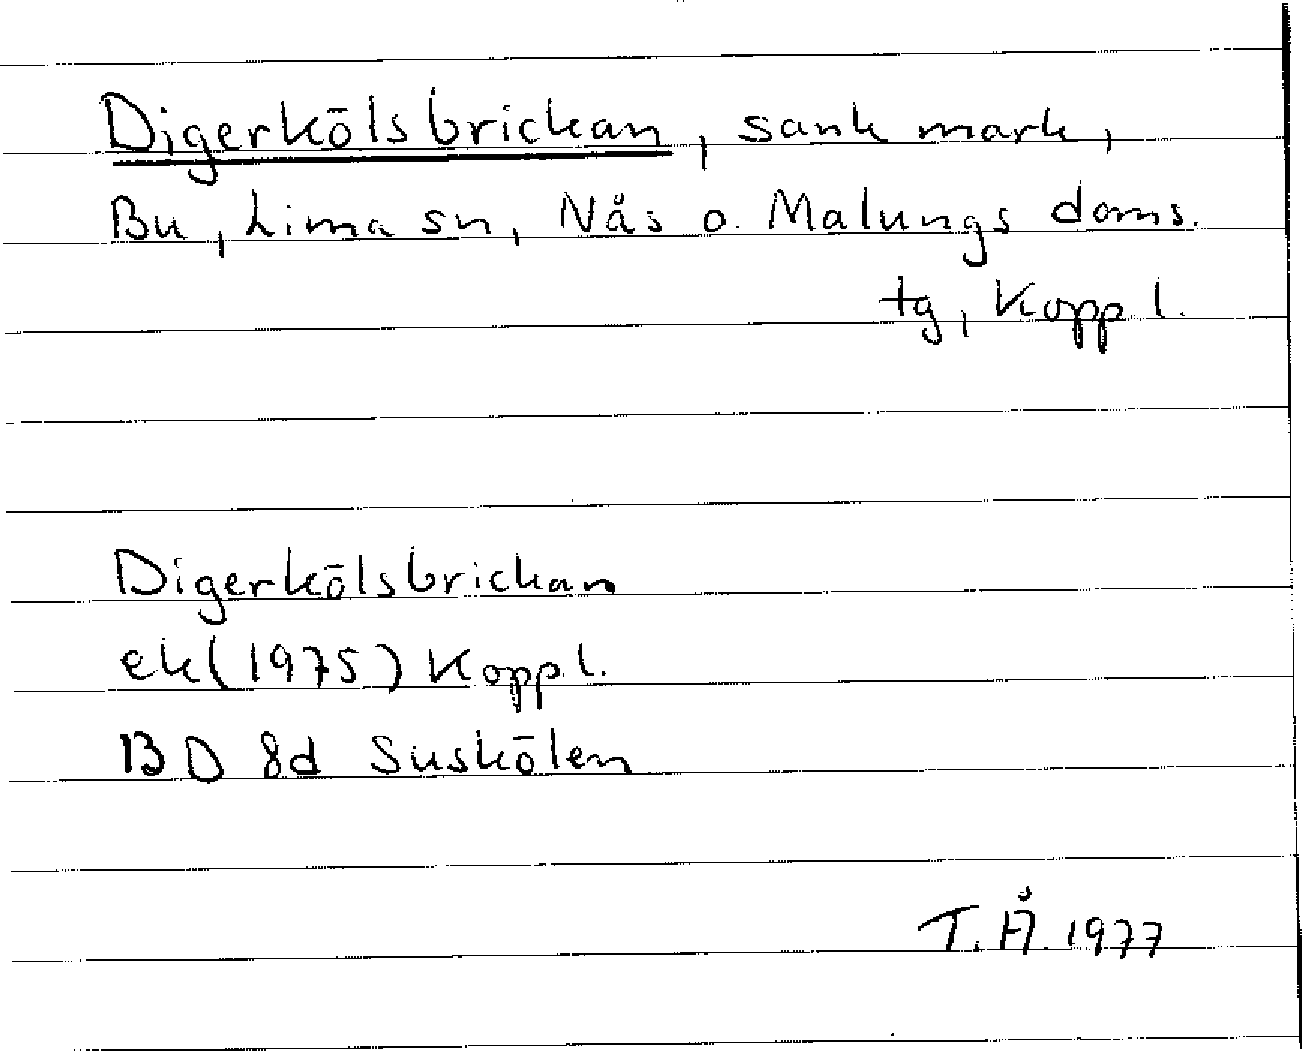 Digerkölsbrickan, sank mark,
Bu, Lima sn, Nås o. Malungs doms.
tg, Koppl.
Digerkölsbrickan
ek(1975) Koppl.
13 D 8d Suskölen
T.Å. 1977